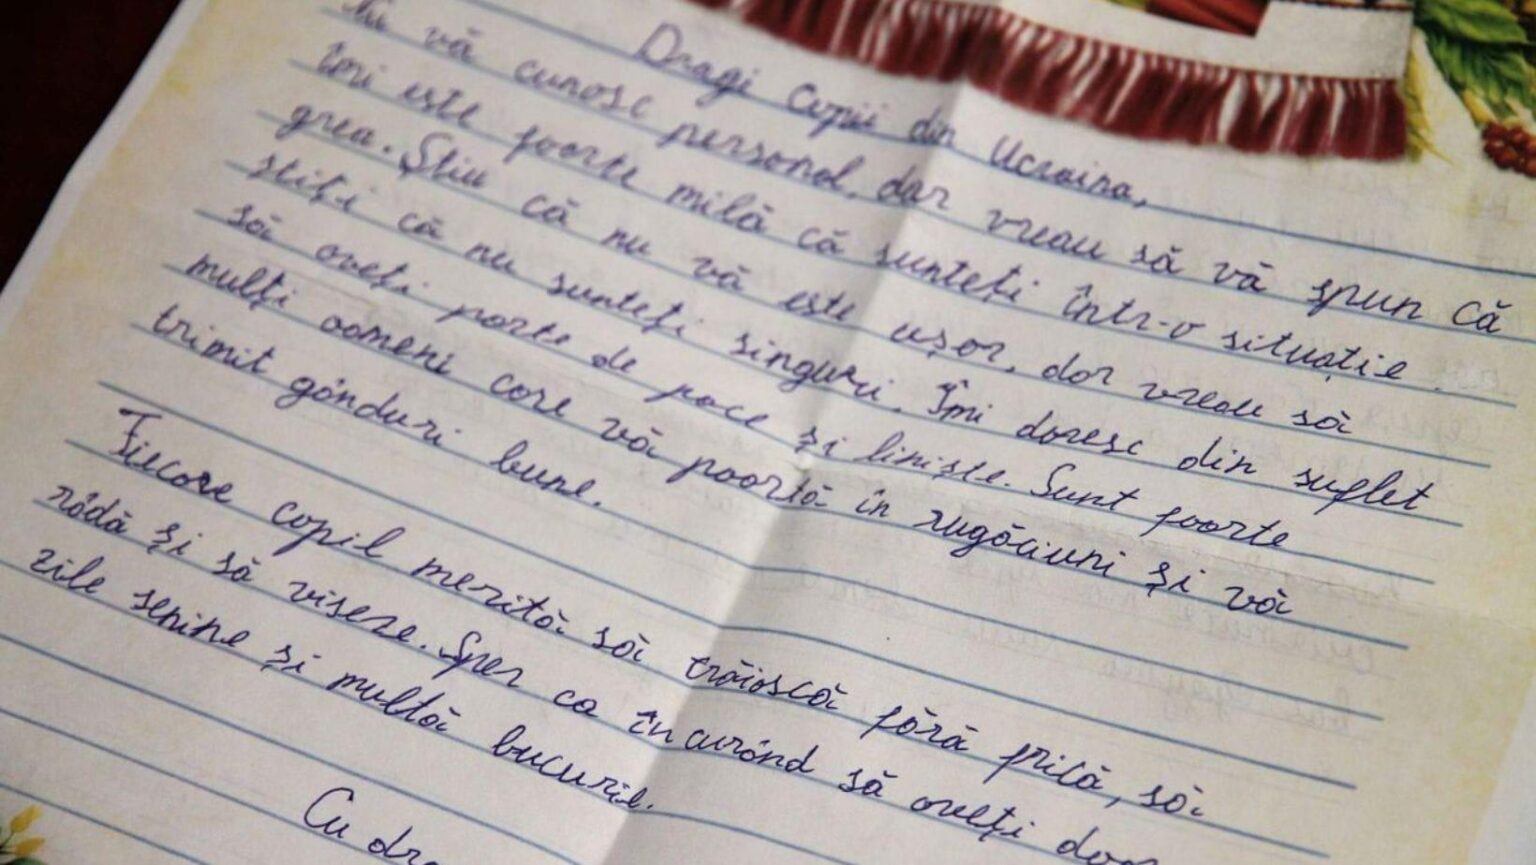 Dragi Copii din Ucraina,
Nu vă cunosc personal, dar vreau să vă spun că
îmi este foarte milă că sunteți într-o situație
grea. Știu că nu vă este ușor, dar vreau să
știți că nu sunteți singuri. Îmi doresc din suflet
să aveți parte de pace și liniște. Sunt foarte
mulți oameni care vă poartă în rugăciuni și vă
trimit gânduri bune.
Fiecare copil merită să trăiască fără frică, să
râdă și să viseze. Sper ca în curând să aveți doar
zile senine și multă bucurie.
Cu